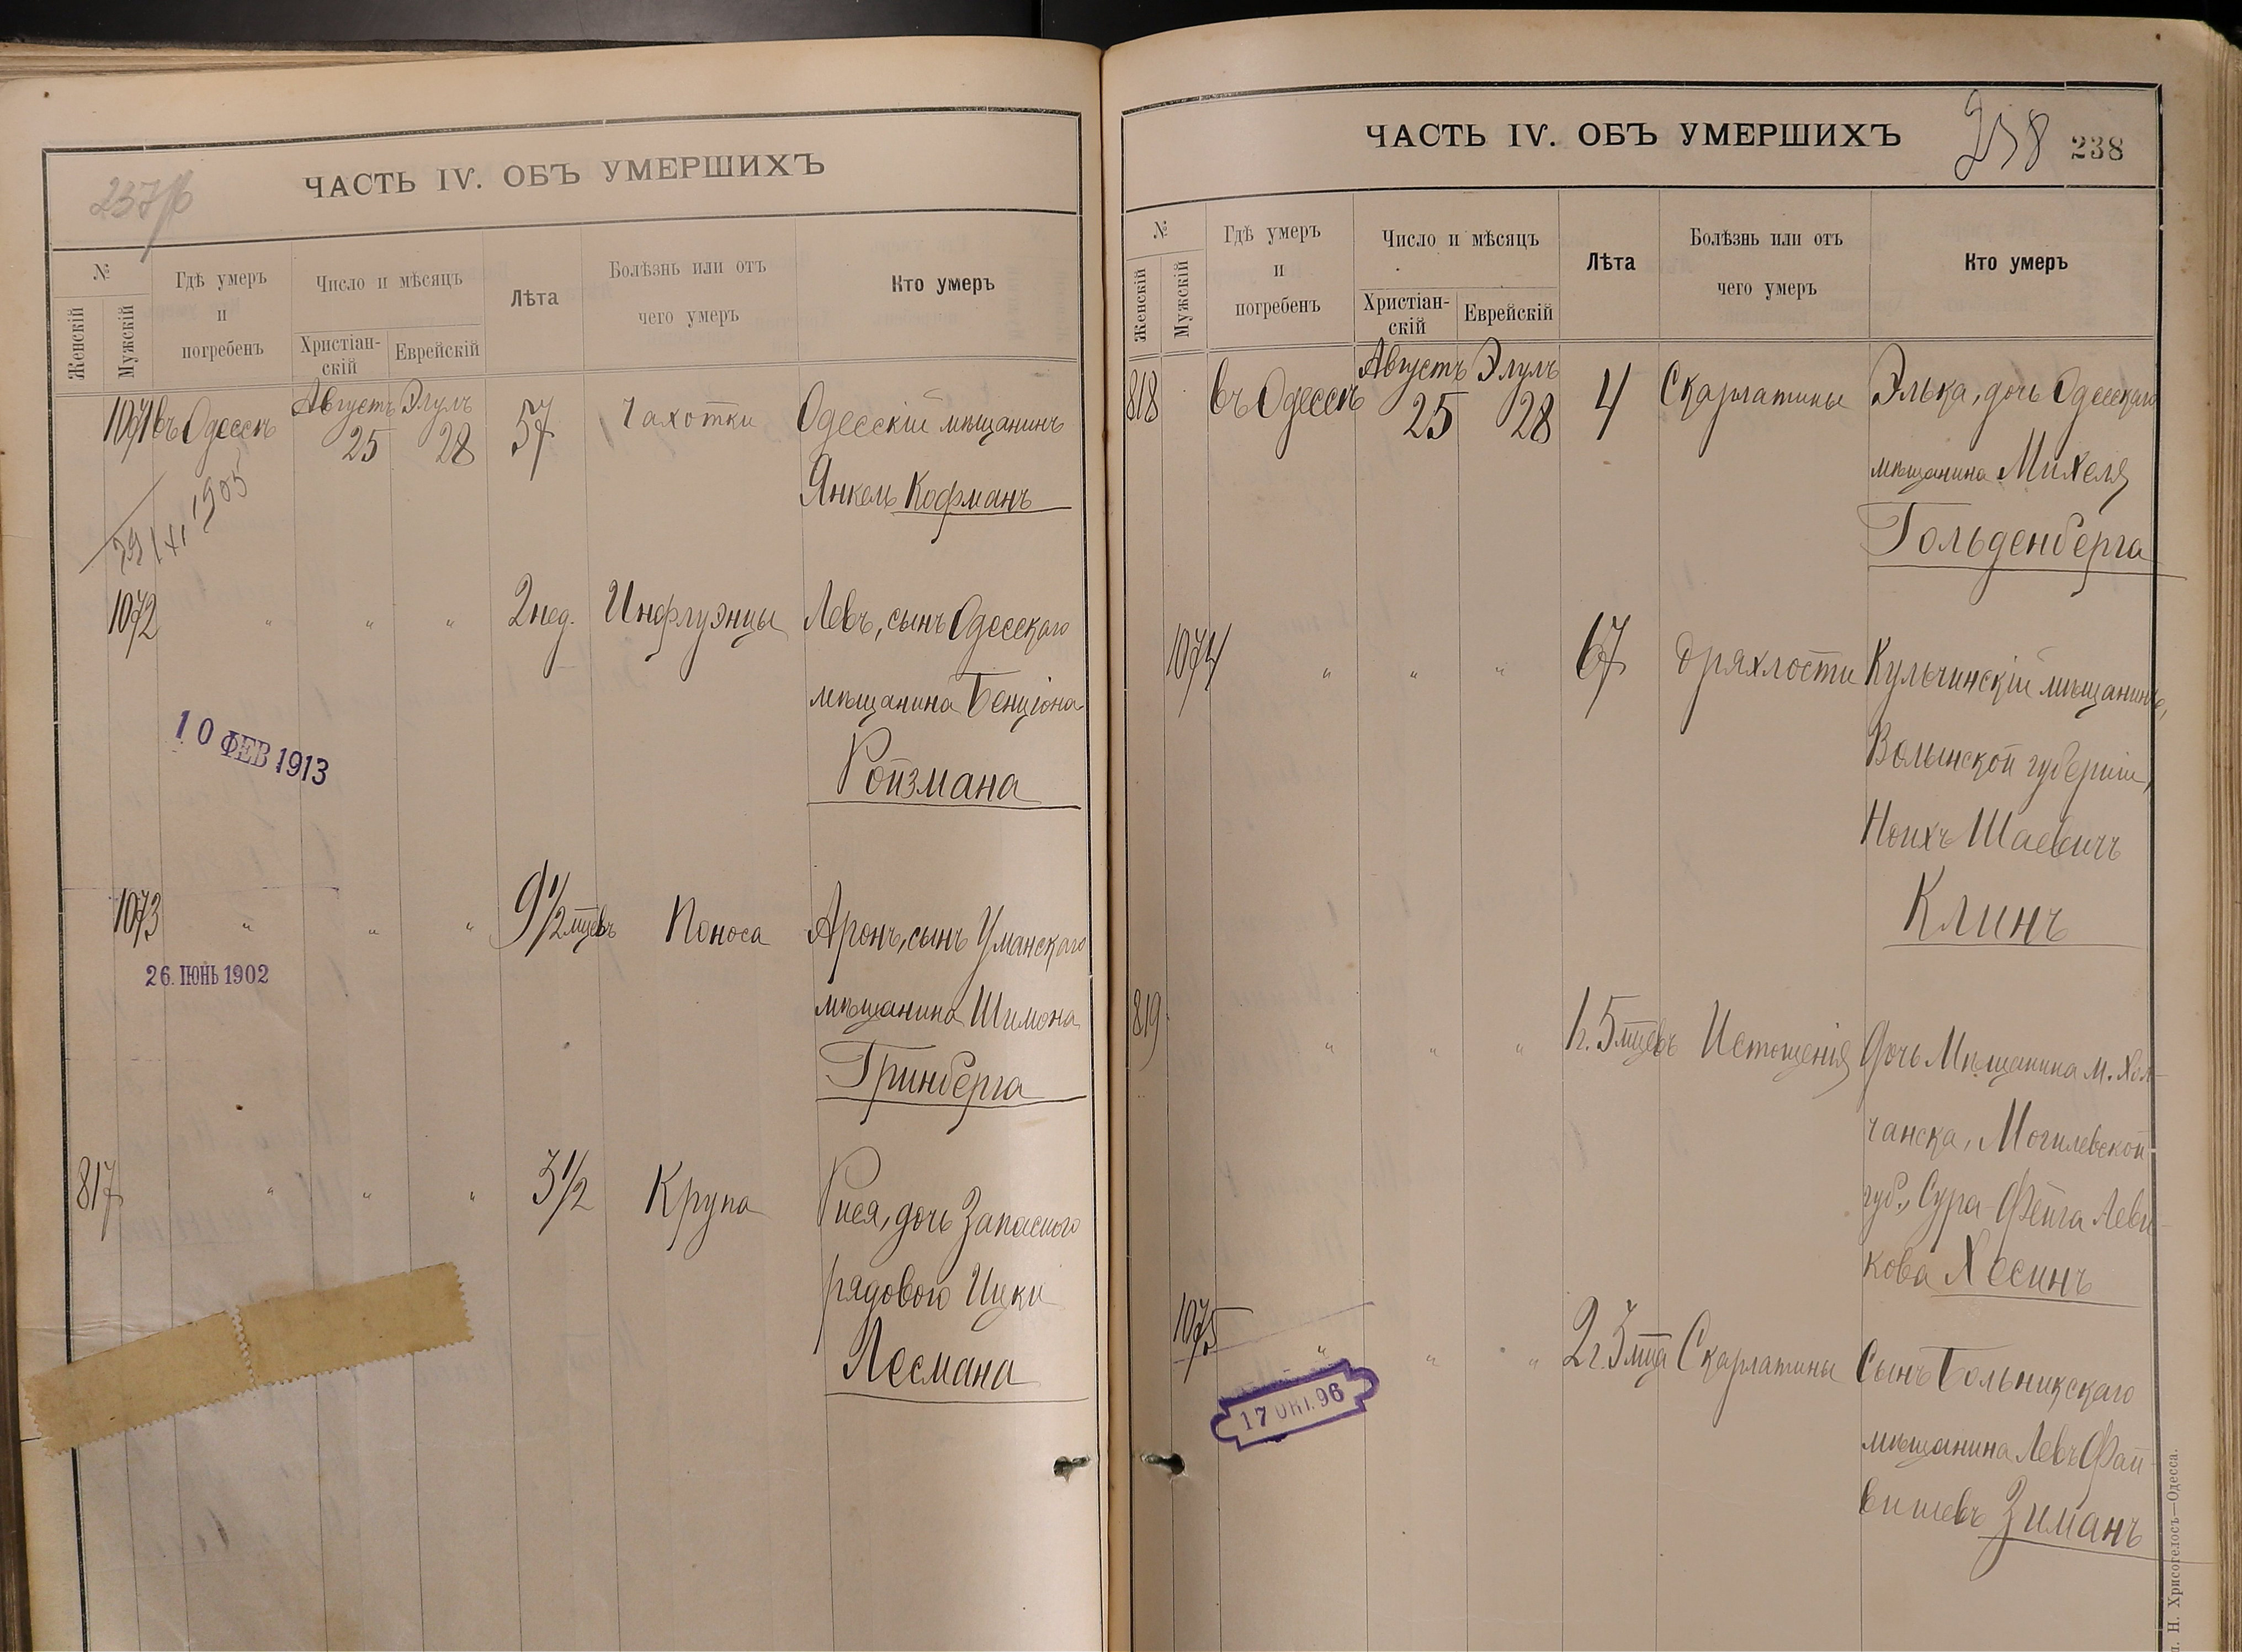 237об
ЧАСТЬ IV. ОБЪ УМЕРШИХЪ
№
Женскій
Мужскій
Гдѣ умеръ
и
погребенъ
Число и мѣсяцъ
Христіан-
скій
Еврейскій
Лѣта
Болѣзнь или отъ
чего умеръ
Кто умеръ
1071 въ Одессѣ Августъ 25 Элулъ 28 57 Чахотки Одесскій мѣщанинъ
Янкель Кофманъ
29/XI 1905
1072 " " " 2 нед. Инфлуэнцы Левъ, сынъ Одесскаго
мѣщанина Бенціона
Ройзмана
10 ФЕВ 1913
1073 " " " 9 1/2 мцевъ Поноса Аронъ, сынъ Уманскаго
26. ІЮНЬ 1902
мѣщанина Шимона
Гринберга
817 " " " 3 1/2 Крупа Рися, дочь Запасного
рядового Ицки
Лесмана
ЧАСТЬ IV. ОБЪ УМЕРШИХЪ
238 238
№
Женскій
Мужскій
Гдѣ умеръ
и
погребенъ
Число и мѣсяцъ
Христіан-
скій
Еврейскій
Лѣта
Болѣзнь или отъ
чего умеръ
Кто умеръ
818 въ Одессѣ Августъ 25 Элулъ 28 4 Скарлатины Элька, дочь Одесскаго
мѣщанина Михеля
Гольденберга
1074 " " " 67 дряхлости Кульчинскій мѣщанинъ,
Волынской губерніи,
Ноихъ Шаевичъ
Клинъ
819 " " " 1 г. 5 мцевъ Истощенія Дочь Мѣщанина м. Хол-
чанска, Могилевской
губ., Сура Фейга Леви-
кова Хесинъ
1075 " " " 2 г. 3 мца Скарлатины Сынъ Больникскаго
17 ОКТ. 96
мѣщанина Левъ Фай-
вишевъ Зиманъ
п. Н. Хрисогелосъ—Одесса.